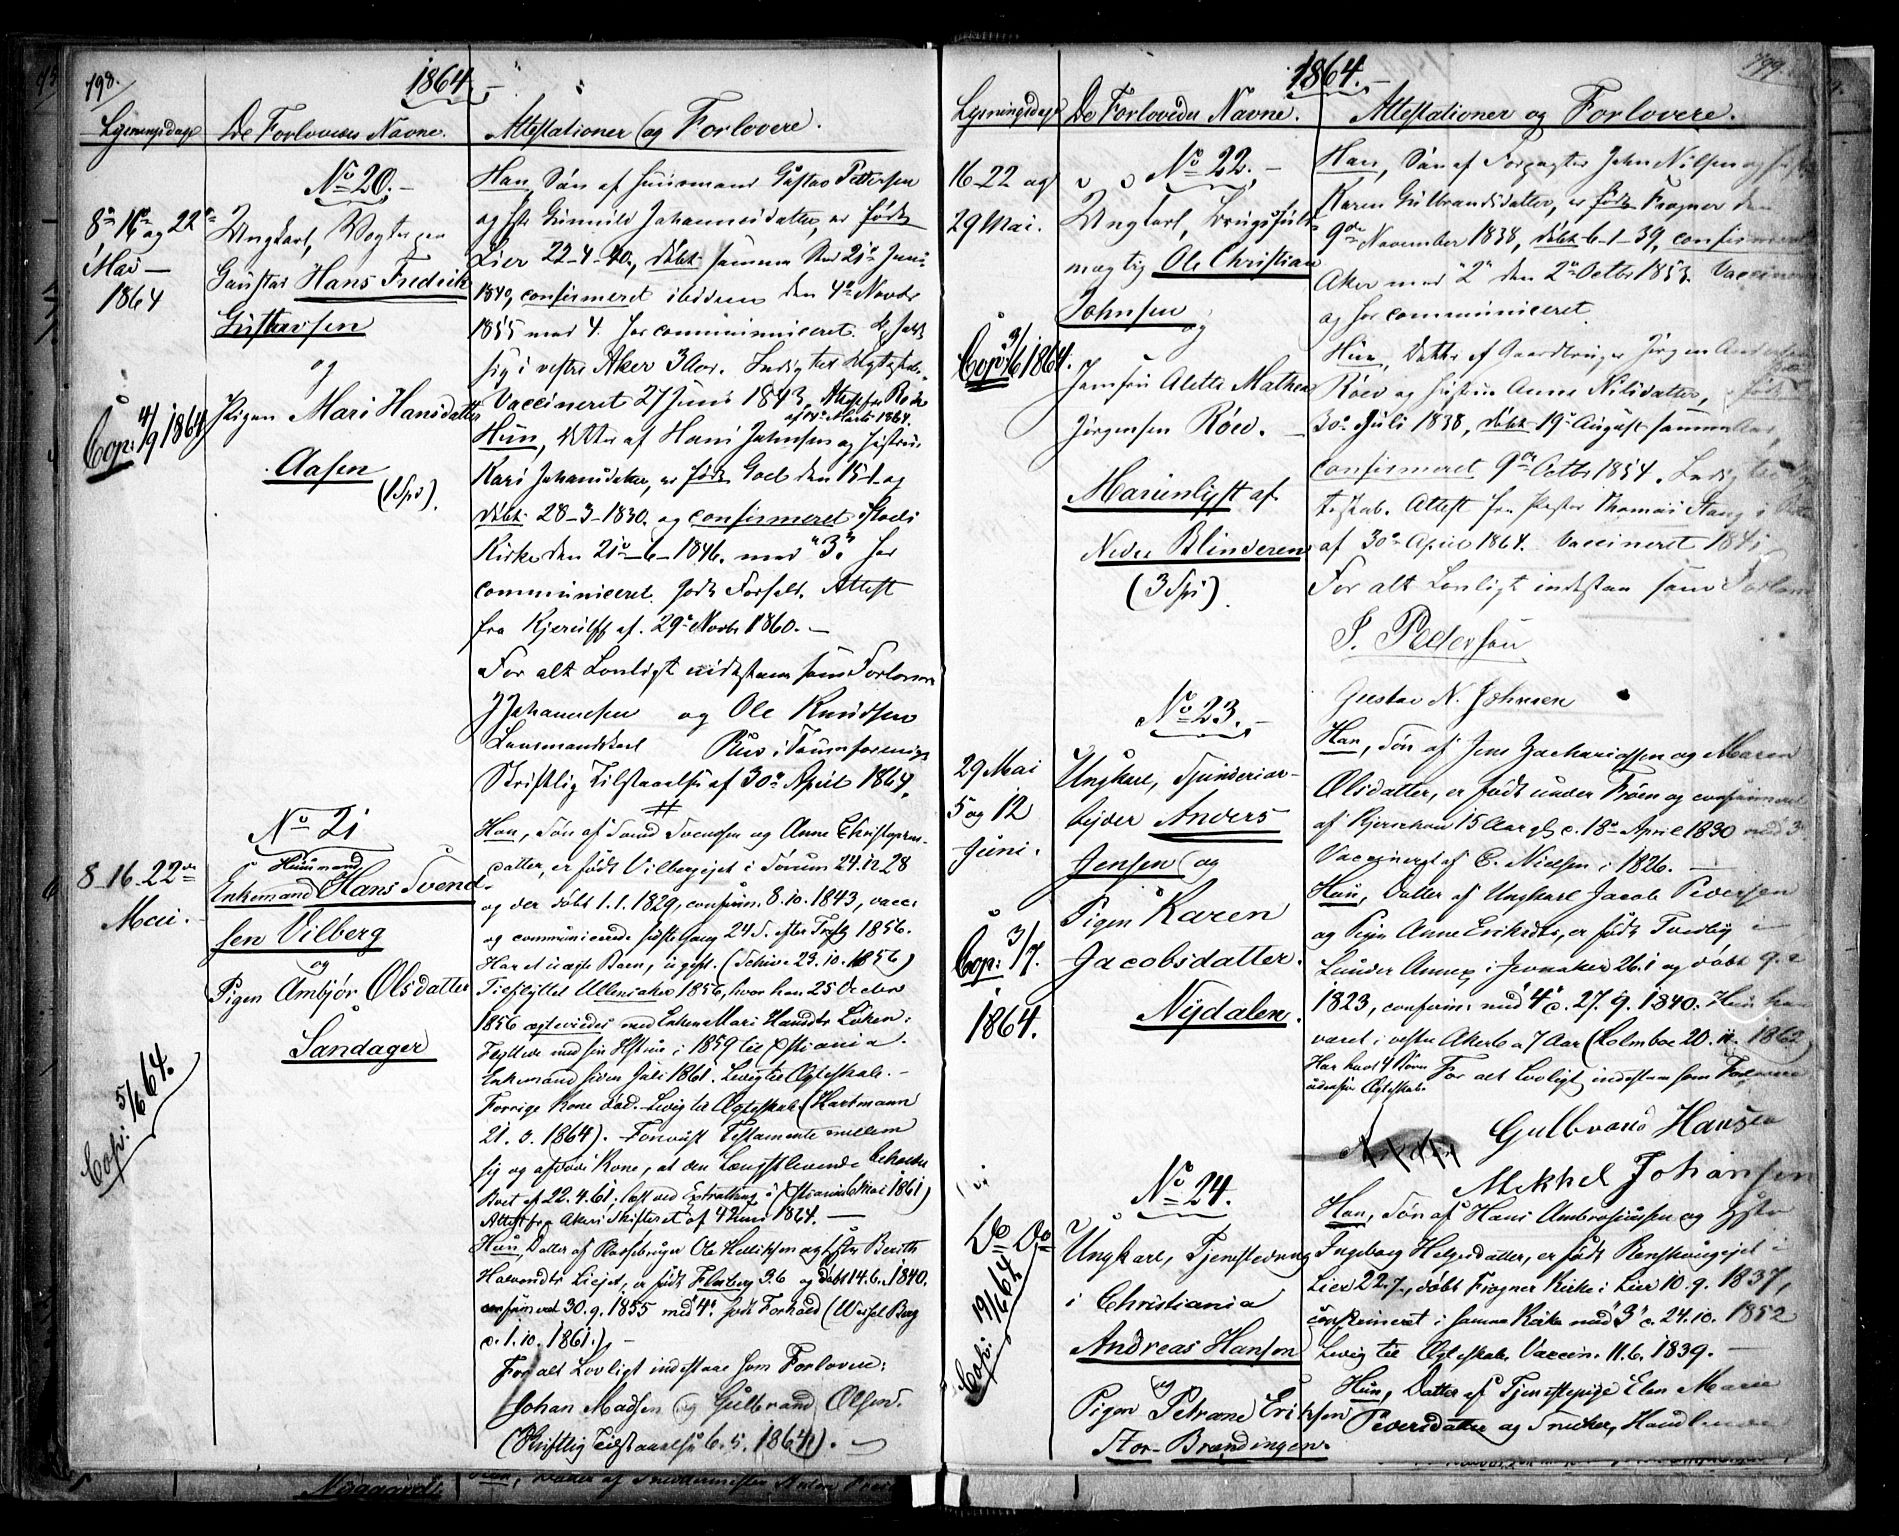 198.
1864.
Lysningsdage
De Forlovedes Navne.
Attestationer og Forlovere.
No 20.
8de 16de og 22de
Mai
1864
Cop: 4/9 1864
Ungkarl,
Gaustad Hans Fredrik
Gustavsen
og
Pigen Mari Hansdatter
Aasen
(1 Spd).
Han, Søn af Huusmand Gustav Pettersen
og Hstr Gunnild Johannesdatter, er født
Lier 22-4-40, døbt samme Sted 21de Juni
1840, confirmeret ibidem den 4de Novbr
1855 med 4. har communiceret.
sig i vestre Aker 3 Aar. Ledig til Ægteskab.
Vaccineret 27 Juni 1843.
Hun, Datter af Hans Johnsen og Hustru
Kari Johansdatter, er født Goel den 15-1- og
døbt 28-3-1830. og confirmeret i Goels
Kirke den 21de-6-1846. med "3." har
communiceret. godt Forhold. Attest
fra Kjerulff af 29de Novbr 1860.
For alt Lovligt indestaae som Forlovere
J Johannesen og Ole Knudsen
Lensmandskarl
Skriftlig Tilstaaelse af 30de April 1864.
No 21
8. 16. 22de
Mai.
Cop: 5/6 64.
Huusmand
Enkemand Hans Svend
sen Vilberg
og
Pigen Ambjør Olsdatter
Sandager
Han, Søn af Svend Svendsen og Anne Christophers
datter, er født Vilbergejet i Sørum 24.12 28
og der døbt 1.1.1829, confirm. 8.10.1843, vacc.
og communicerede sidste Gang 24 S. efter Trefg 1856.
Har et uægte Barn, ugift. (Schive 23.10.1856)
Tilflyttet Ullensaker 1856, hvor han 25 Octbr
1856 ægteviedes med Enken Mari Hansdtr Løken:
Flyttede med sin Hstru i 1859 til Xstiania.
Enkemand siden Juli 1861. Ledig til Ægteskab.
Forrige Kone død. Ledig til Ægteskab (Hartmann
21. 3. 1864). Forevist Testamente mellem
sig og afdøde Kone, at den Længstlevende beholder
Boet af 22.4.61.
Attest fra Akers Skifteret af 4 Juni 1864.
Hun, Datter af Pladsbruger Ole Hellissen og Hstr Berith
Halvorsdtr Liejet, er født Flesberg 3.6 og døbt 14.6.1840.
confirmeret 30.9.1855 med "4". godt Forhold (Wessel Berg
d. 1.10.1861).
For alt Lovligt indestaae som Forlovere:
Johan Madsen og Gulbrand Olsen.
(Skriftlig Tilstaaelse 6.5.1864).
199.
1864.
Lysningsdage
De Forlovedes Navne.
Attestationer og Forlovere.
No 22.
16-22 og
29 Mai.
Cop: 3/6 1864.
Ungkarl, Brugsfuld-
mægtig Ole Christian
Johnsen
og
Jomfru Alette Mathea
Jørgensen Røed.
Marienlyst af
Nedre Blinderen
(3 Spd).
Han, Søn af Forpagter John Nilsen og Hustru
Karen Gulbrandsdatter, er født Frogner den
9de November 1838, døbt 6-1-39, confirmeret
Aker med "2" den 2de Octbr 1853. Vaccineret
og har communiceret.
Hun, Datter af Gaardbruger Jørgen Andersen
Røed og Hustru Anne Nilsdatter, født
30te Juli 1838, døbt 19de August samme Aar,
confirmeret 9de Octbr 1854. Ledig til Æg-
teskab. Attest fra Pastor Thomas Stang i
af 30te April 1864. Vaccineret 1841
For alt Lovligt indestaae som Forlovere
S. Pedersen
Gustav N. Johnsen
No 23.
29 Mai
5 og 12
Juni.
Cop: 3/7.
1864.
Ungkarl, Spinderiar-
beider Anders
Jensen og
Pigen Karen
Jacobsdatter.
Nydalen.
Han, Søn af Jens Zachariassen og Maren
Olsdatter, er født under Frøen og confirmeret
af Kjerschou 15 Aar gl. d. 18de April 1830 med 3.
Vaccineret af C. Nielsen i 1826.
Hun, Datter af Ungkarl Jacob Pedersen
og Pigen Anne Eriksdtr, er født Tvedlig i
Lunder Annex i Jevnaker 26.1 og døbt 9.2
1823, confirm. med "4" d. 27.9.1840. Hun har
været i vestre Aker 6 a 7 Aar (Holmboe 20.11.1862)
Har havt 4 Børn
udenfor Ægteskab.
For alt Lovligt indestaae som Forlovere
Gulbrand Hansen
Mekkel Johansen
No 24.
Do Do
Cop: 19/6 64
Ungkarl, Tjenestedreng
i Christiania
Andreas Hansen
og
Pigen Petrane Eriksen
Stor-Brændingen.
Han, Søn af Hans Ambrosiussen og Hstr
Ingeborg Helgesdatter, er født Renskougejet i
Lier 22.7., døbt Frogner Kirke i Lier 10.9.1837,
confirmeret i samme Kirke med "3" d. 24.10.1852
Ledig til Ægteskab. Vaccin. 11.6.1839.
Hun, Datter af Tjenestepige Elen Marie
Pedersdatter og Snedker,